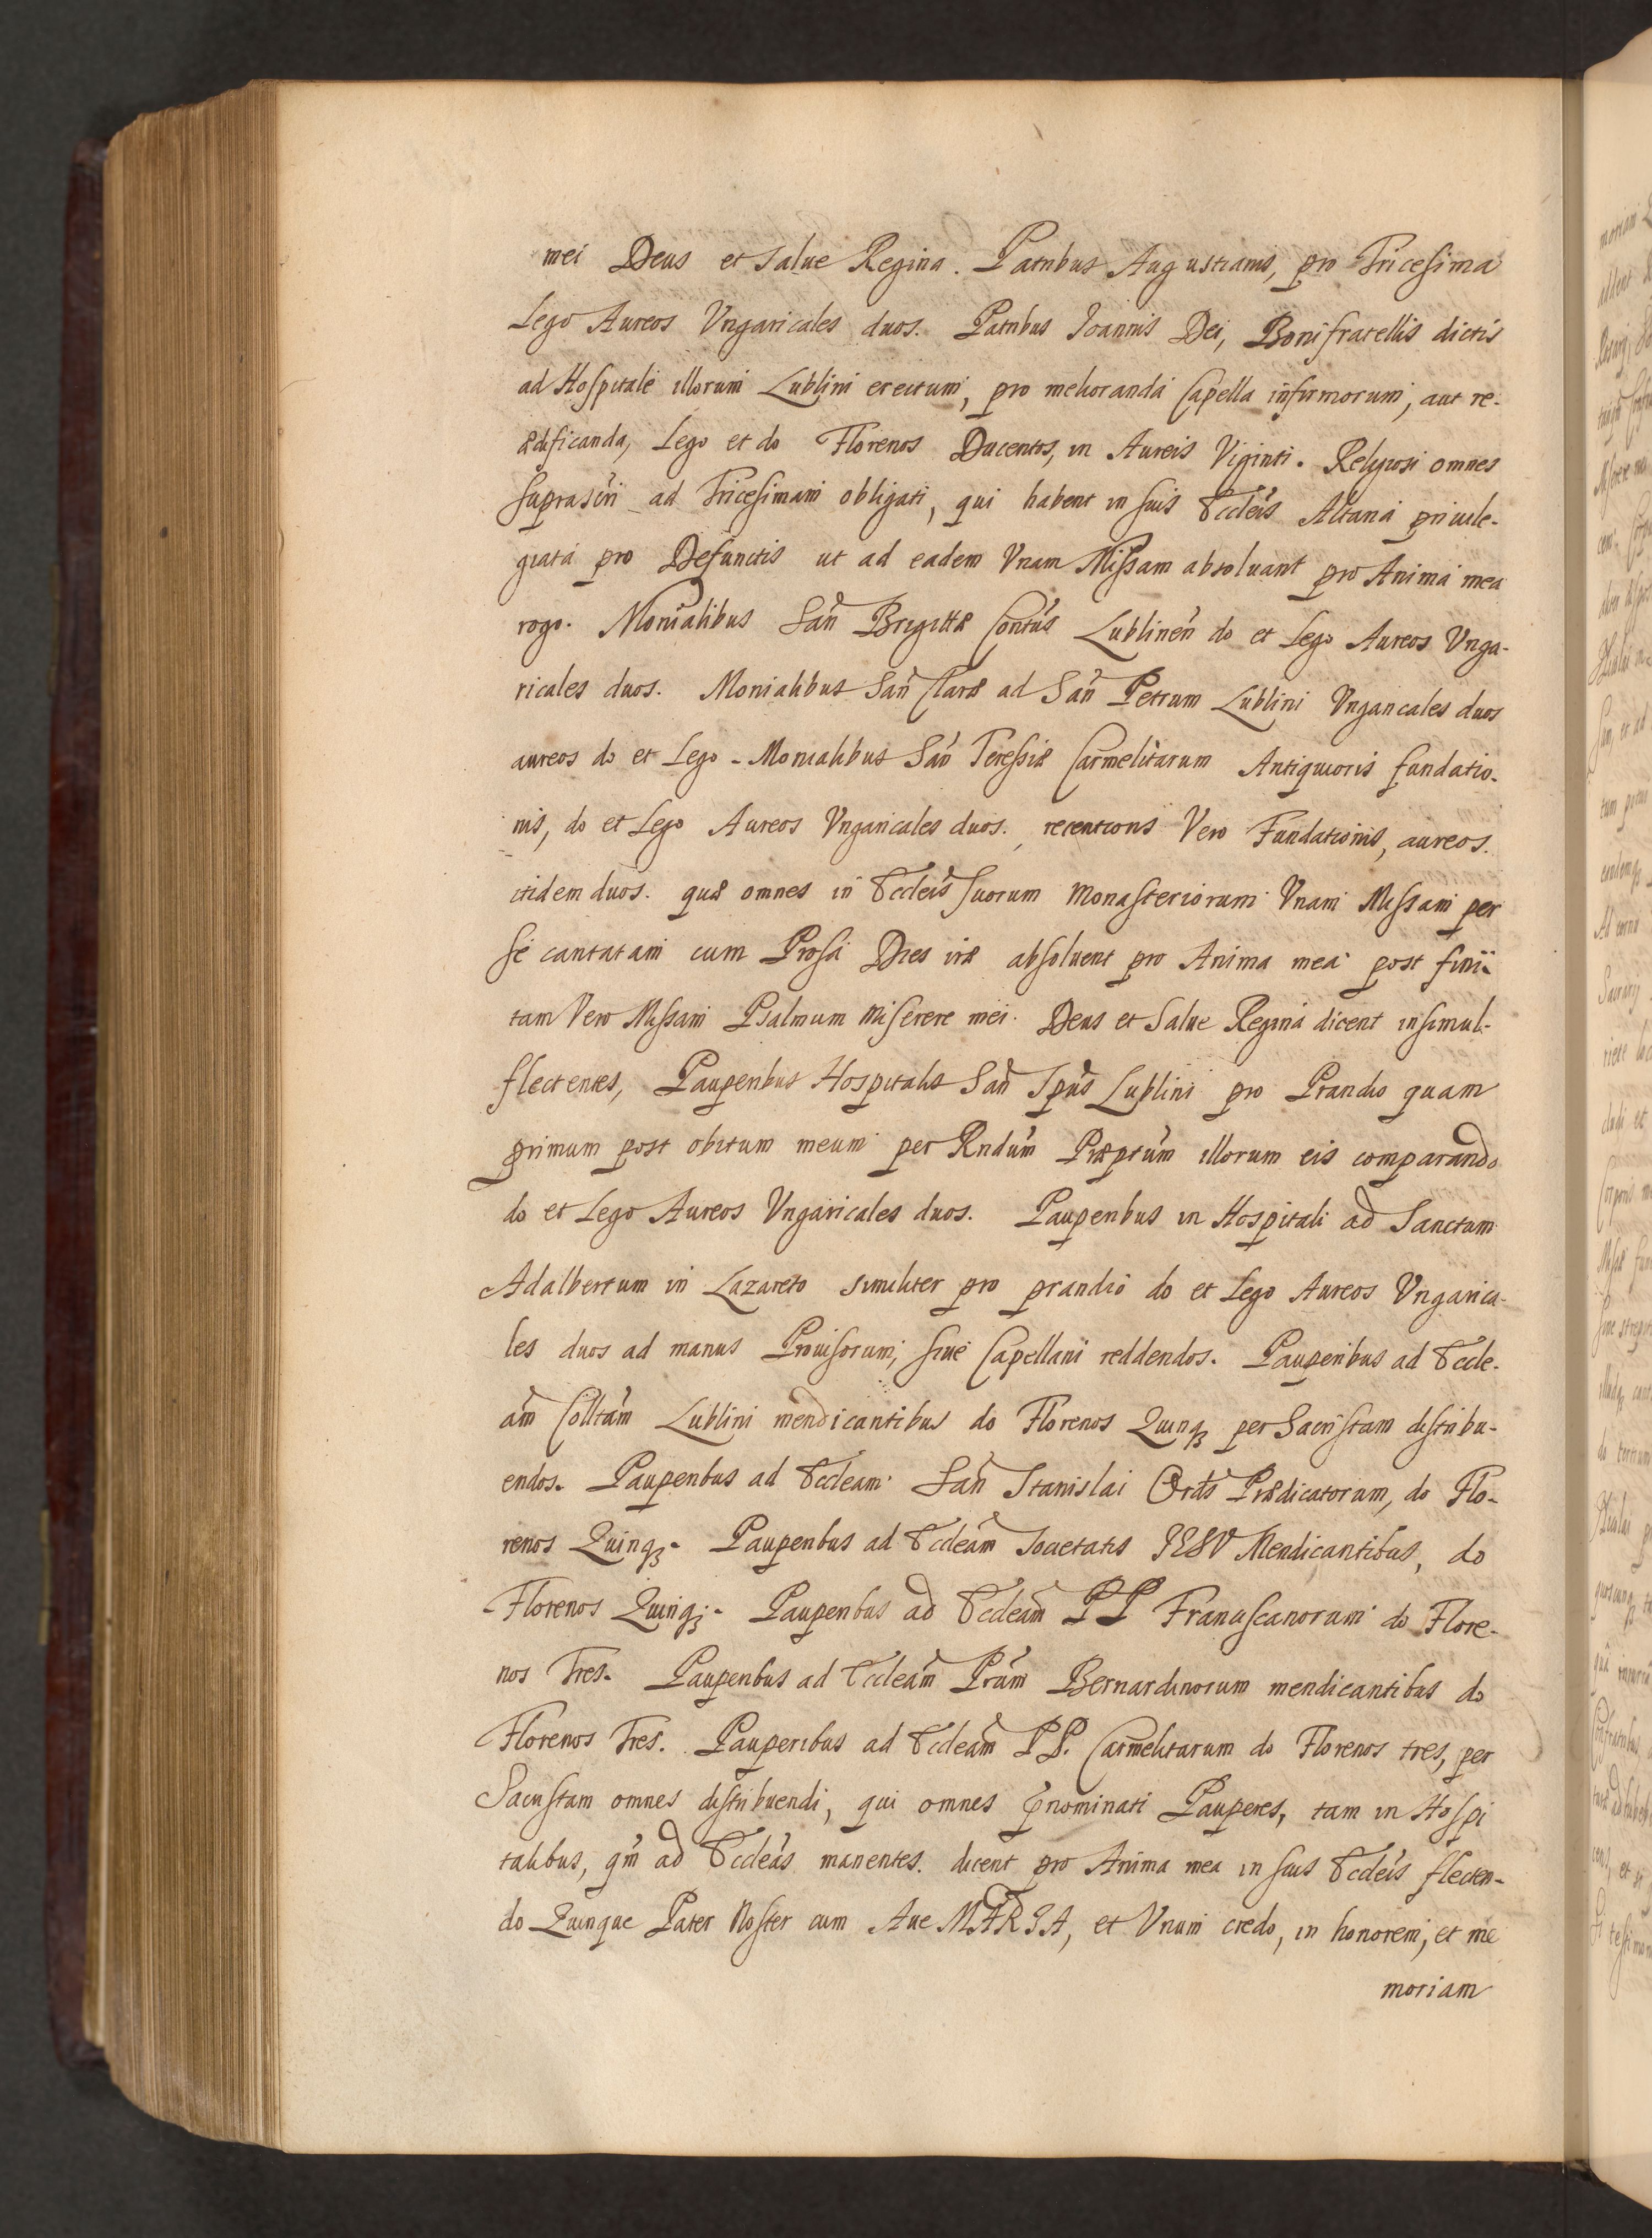 mei Deus et Salue Regina. Patribus Augustianis, pro Tricesima
Lego Aureos Vngaricales duos. Patribus Joannis Dei, Bonifratellis dictis
ad Hospitale illorum Lublini erectum, pro melioranda Capella infirmorum, aut re-
ædificanda, Lego et do Florenos Ducentos, in Aureis Viginti. Religiosi omnes
suprascri ad Tricesimam obligati, qui habent in suis Eccleis Altaria priuile-
giata pro Defunctis ut ad eadem Vnam Missam absoluant pro Anima mea
rogo. Monialibus San Brigittæ Contus Lublinen do et Lego Aureos Vnga-
ricales duos. Monialibus San Claræ ad San Petrum Lublini Vngaricales duos
aureos do et Lego - Monialibus San Teressiæ Carmelitarum Antiquioris fundatio-
nis, do et Lego Aureos Vngaricales duos. recentioris Vero Fundationis, aureos.
itidem duos. quæ omnes in Eccleis suorum Monasteriorum Vnam Missam per
se cantatam cum Prosa Dies iræ absoluent pro Anima mea post fini-
tam Vero Missam Psalmum Miserere mei Deus et Salue Regina dicent insimul
flectentes, Pauperibus Hospitalis San Spus Lublini pro Prandio quam
primum post obitum meum per Rndum Præptum illorum eis comparando
do et Lego Aureos Vngaricales duos. Pauperibus in Hospitali ad Sanctum
Adalbertum in Lazareto similiter pro prandio do et Lego Aureos Vngarica-
les duos ad manus Prouisorum, siue Capellani reddendos. Pauperibus ad Eccle-
am Colltam Lublini mendicantibus do Florenos Quinqꝫ per Sacristam distribu-
endos. Pauperibus ad Eccleam San Stanislai Ordis Prædicatorum, do Flo-
renos Quinqꝫ- Pauperibus ad Eccleam Societatis JESV Mendicantibus, do
Florenos Quinqꝫ- Pauperibus ad Eccleam PP Franciscanorum do Flore-
nos Tres. Pauperibus ad Eccleam Pram Bernardinorum mendicantibus do
Florenos Tres. Pauperibus ad Eccleam PP. Carmelitarum do Florenos tres, per
Sacristam omnes distribuendi, qui omnes pnominati Pauperes, tam in Hospi
talibus, qm ad Eccleas manentes. dicent pro Anima mea in suis Eccleis flecten-
do Quinque Pater Noster cum Aue MARIA, et Vnum credo, in honorem, et me
moriam